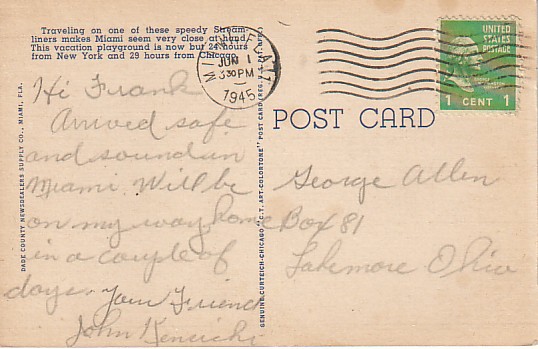 Traveling on one of these speedy Stream-
liners makes Miami seem very close at hand.
This vacation playground is now but 24 hours
from New York and 29 hours from Chicago.
MIAMI, FLA.
JUN 1
3 30 PM
1945
UNITED
STATES
POSTAGE
1 CENT 1
POST CARD
Hi Frank
Arrived safe
and sound in
Miami. Will be
on my way home
in a couple of
days. Your Friend
John
George Allen
Box 81
Lakemore Ohio
DADE COUNTY NEWSDEALERS SUPPLY CO., MIAMI, FLA.
GENUINE CURTEICH-CHICAGO "C.T. ART-COLORTONE" POST CARD (REG. U.S. PAT. OFF.)